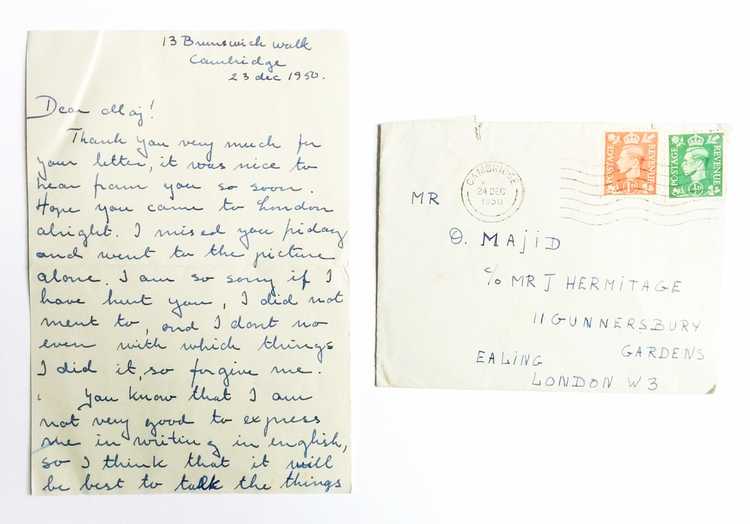 13 Brunswick walk
Cambridge
23 dec 1950.
Dear Maj!
Thank you very much for
your letter, it was nice to
hear from you so soon.
Hope you came to London
alright. I missed you friday
and went to the picture
alone. I am so sorry if I
have hurt you, I did not
ment to, and I dont no
even with which things
I did it, so forgive me.
You know that I am
not very good to express
me in writing in english,
so I think that it will
be best to talk the things
CAMBRIDGE
24 DEC
1950
POSTAGE REVENUE
1D
POSTAGE REVENUE
½D
MR
O. MAJID
c/o MR J HERMITAGE
11 GUNNERSBURY
GARDENS
EALING
LONDON W3